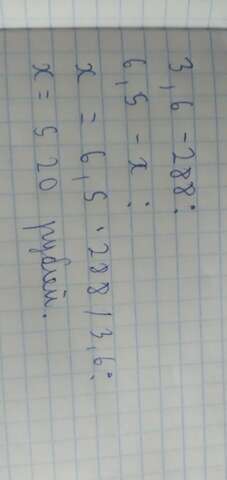 3,6 - 288;
6,5 - x;
x = 6,5 · 288 / 3,6;
x = 520 рублей.